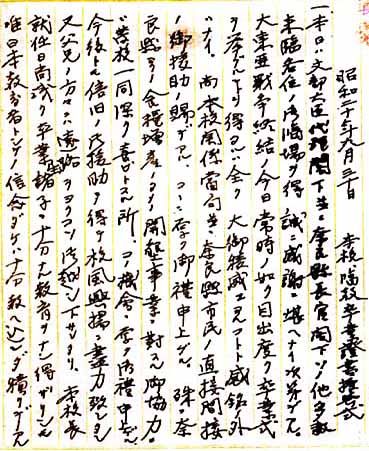 昭和二十年九月三十日　本校臨教卒業證書授与式
一本日文部大臣代理閣下並ニ奈良縣長官閣下ソノ他多数
来臨各位ノ御臨場ヲ得誠ニ感謝ニ堪ヘナイ次第デス
大東亜戦争終結ノ今日常時ノ如ク目出度ク卒業式
ヲ挙ゲルコトヲ得ルハ全ク大御稜威ニヨルコトト感銘ノ外
ナイ、尚本校関係當局並ニ奈良縣市民ノ直接間接
ノ御援助ノ賜デアル、コヽニ厚ク御禮申上グル、殊ニ奈
良縣ヨリ食糧増産ノ開墾事業ニ對スル御協力ハ
本校一同深ク喜ロトスル所、コノ機會ニ厚ク御禮申上グ
今後トモ倍旧ノ援助ヲ得テ校風興揚ニ盡力致シタイ
又父兄ノ方々ニハ遠路ヨクコソ御越シ下サツタ、本校長
就任日尚浅ク卒業諸子ニ十分ナル教育ヲナシ得ザリシモ
唯日本教育者トシテノ信念ダケハ十分教ヘ込ンダ積リデス